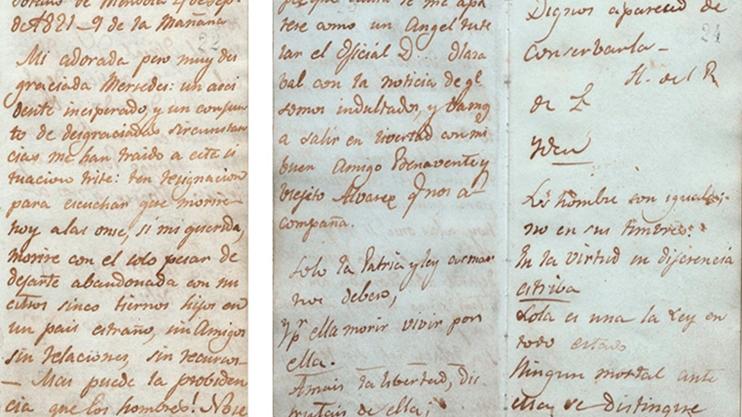 de 1821 - 9 de la Mañana
22
Mi adorada pero muy des
graciada Mercedes: un acci
dente inesperado, y un conjun
to de desgraciadas sircunstan
cias me han traido a esta si
tuacion triste: ten resignacion
para escuchar que morire
hoy a las onse, si mi querida,
morire con el solo pesar de
dejarte abandonada con nu
estros sinco tiernos hijos en
un pais estraño, sin Amigos
sin relaciones, sin recursos
— Mas puede la probiden
cia que los hombre! No se
me apa
rese como un Angel tute
lar el Oficial D.
bal con la noticia de qe
somos indultados, y vamos
a salir en livertad con mi
buen Amigo Benavente y
Viejito Alvarez qe nos a
compaña.
Solo la Patria y ley
nos debero,
Y pr ella morir vivir por
ella.
Amais la libertad, dis
frutais de ella;
Dignos aparesed de
24
conservarla —
de
Yden
Ls hombre son iguales;
no en sus timbres:
En la virtud su diferencia
estriva
Sola es una la Ley en
todo estado
Ningun mortal ante
ella se distingue